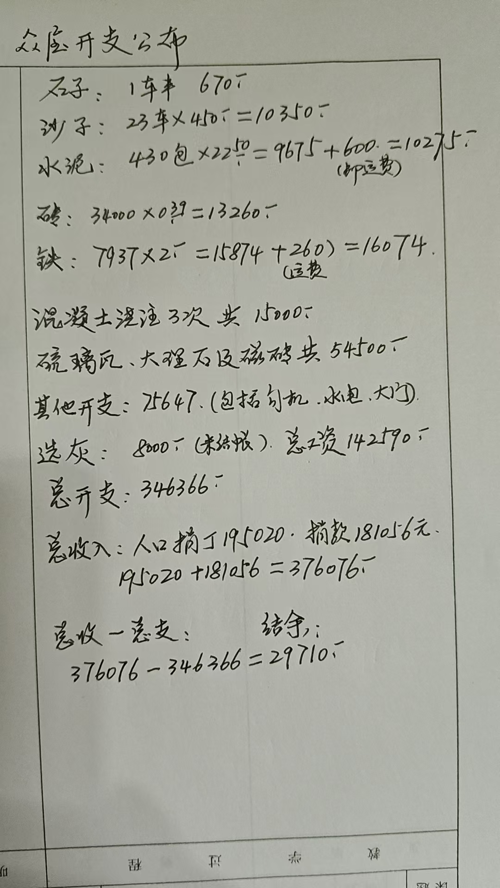 众屋开支公布
石子: 1车半 670.-
沙子: 23车×450.-=10350.-
水泥: 430包×22.50=9675+600.=10275.-
(卸运费)
砖: 34000×0.39=13260.-
铁: 7937×2.-=15874+260)=16074.
(运费
混凝土浇注3次 共 15000.-
硫璃瓦、大理石及磁砖共 54500.-
其他开支: 75647.(包括司机、水电、大门).
送灰: 8000.-(未结帐). 总工资 142590.-
总开支: 346366.-
总收入: 人口捐丁195020. 捐款181056元.
195020+181056=376076.-
总收-总支: 结余:
376076-346366=29710.-
教 学 过 程
课 题